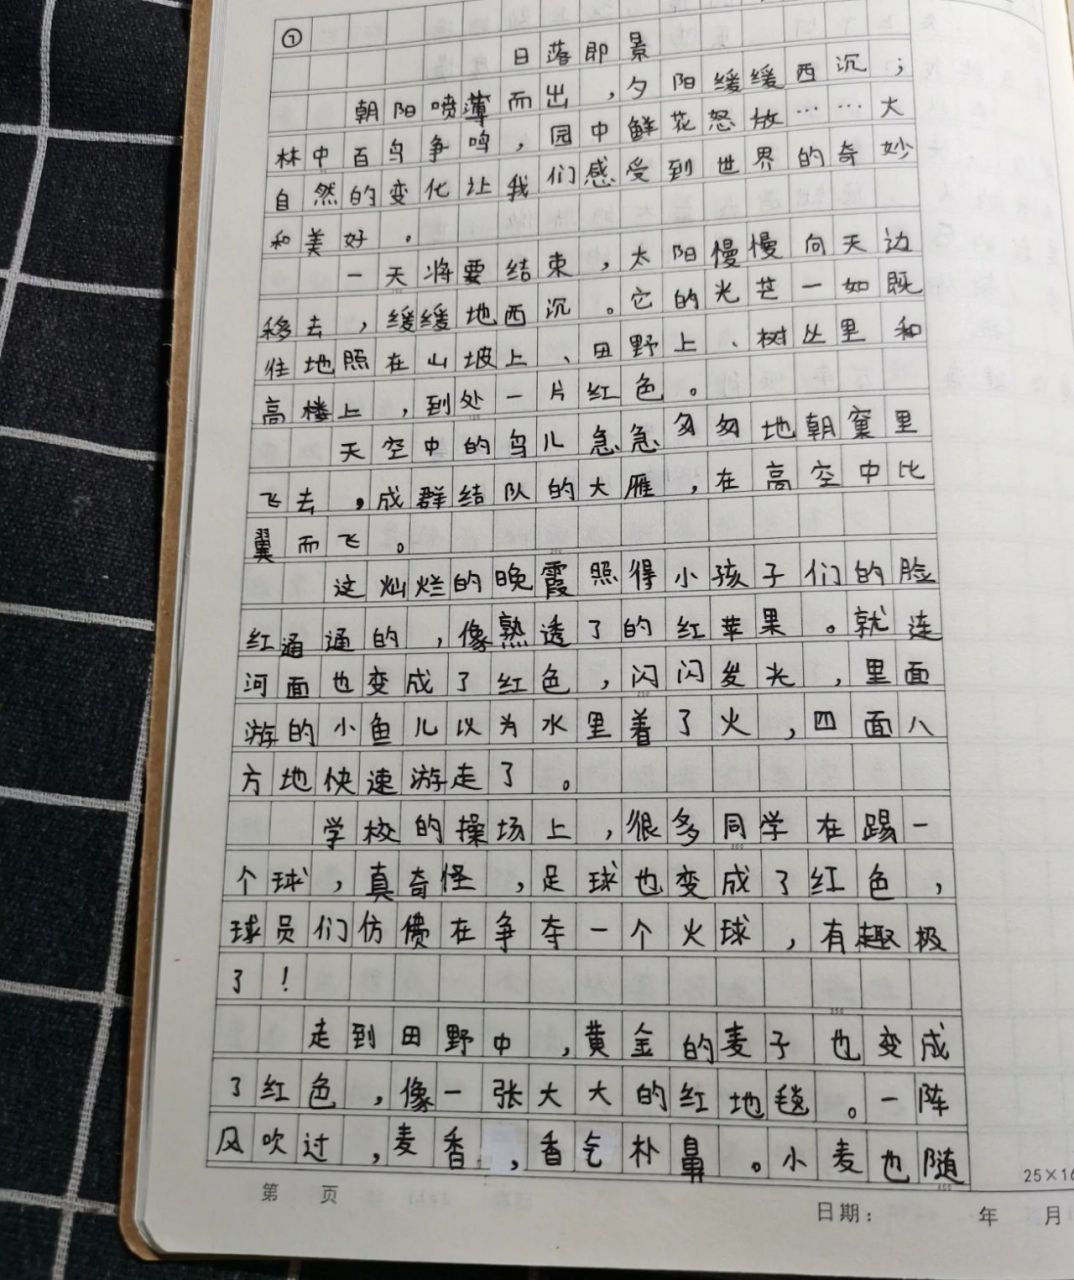 ①
日落即景
朝阳喷薄而出，夕阳缓缓西沉；
林中百鸟争鸣，园中鲜花怒放……大
自然的变化让我们感受到世界的奇妙
和美好。
一天将要结束，太阳慢慢向天边
移去，缓缓地西沉。它的光芒一如既
往地照在山坡上、田野上、树丛里和
高楼上，到处一片红色。
天空中的鸟儿急急匆匆地朝窠里
飞去，成群结队的大雁，在高空中比
翼而飞。
这灿烂的晚霞照得小孩子们的脸
红通通的，像熟透了的红苹果。就连
河面也变成了红色，闪闪发光，里面
游的小鱼儿以为水里着了火，四面八
方地快速游走了。
学校的操场上，很多同学在踢一
个球，真奇怪，足球也变成了红色，
球员们仿佛在争夺一个火球，有趣极
了！
走到田野中，黄金的麦子也变成
了红色，像一张大大的红地毯。一阵
风吹过，麦香，香气朴鼻。小麦也随
25×16
第 页
日期： 年 月